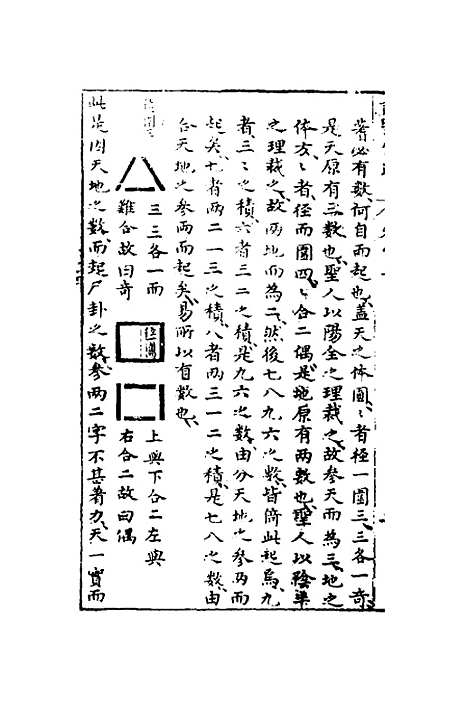 蓍必有數何自而起也蓋天之体圓〻者径一圍三三各一奇
是天原有三數也聖人以陽全之理裁之故参天而為三地之
体方〻者径一而圍四〻合二偶是地原有兩數也聖人以陰半
之理裁之故兩地而為二然後七八九六之數皆倚此起焉九
者三三之積六者三二之積是九六之數由分天地之参兩而
起矣七者兩二一三之積八者兩三一二之積是七八之數由
合天地之参兩而起矣易所以有數也
徑圍三
三三各一而
難合故曰奇
徑圍四
上與下合二左與
右合二故曰偶
此是因天地之數而起尸卦之數参兩二字不甚著力天一實而